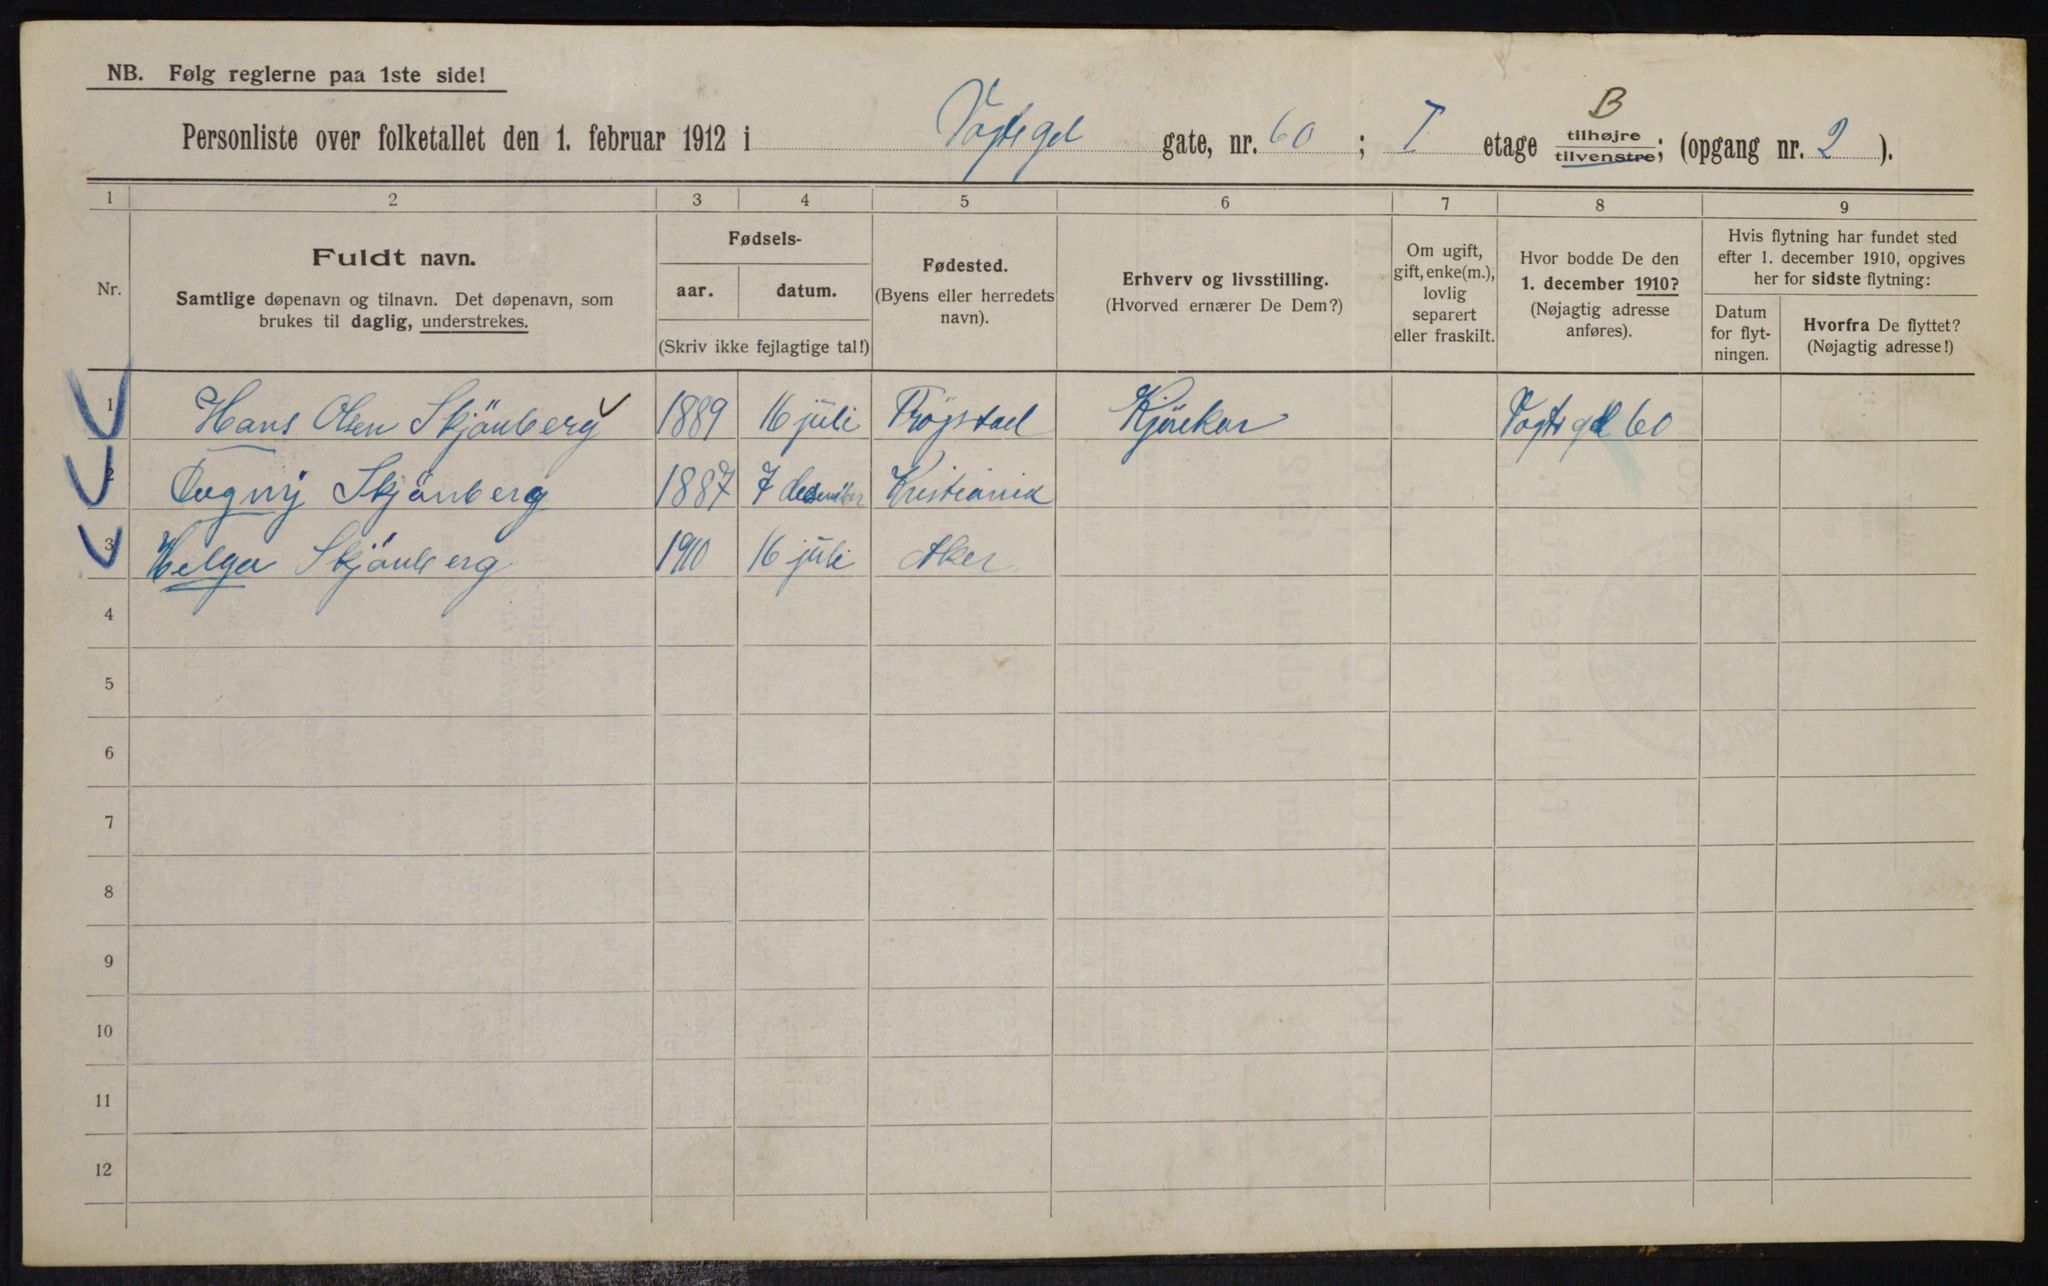 NB. Følg reglerne paa 1ste side!
Personliste over folketallet den 1. februar 1912 i Vogtsgd gate, nr. 60 ; I etage B tilhøjre tilvenstre; (opgang nr. 2 ).
1 2 3 4 5 6 7 8 9
Nr.
Fuldt navn.
Samtlige døpenavn og tilnavn. Det døpenavn, som
brukes til daglig, understrekes.
Fødsels-
aar. datum.
(Skriv ikke fejlagtige tal!)
Fødested.
(Byens eller herredets
navn).
Erhverv og livsstilling.
(Hvorved ernærer De Dem?)
Om ugift,
gift, enke(m.),
lovlig
separert
eller fraskilt.
Hvor bodde De den
1. december 1910?
(Nøjagtig adresse
anføres).
Hvis flytning har fundet sted
efter 1. december 1910, opgives
her for sidste flytning:
Datum
for flyt-
ningen.
Hvorfra De flyttet?
(Nøjagtig adresse!)
1 Hans Olsen Skjönberg 1889 16 juli Trögstad Kjörekar Vogts gd 60
2 Dagny Skjönberg 1887 7 desember Kristiania
3 Helga Skjönberg 1910 16 juli Aker
4
5
6
7
8
9
10
11
12